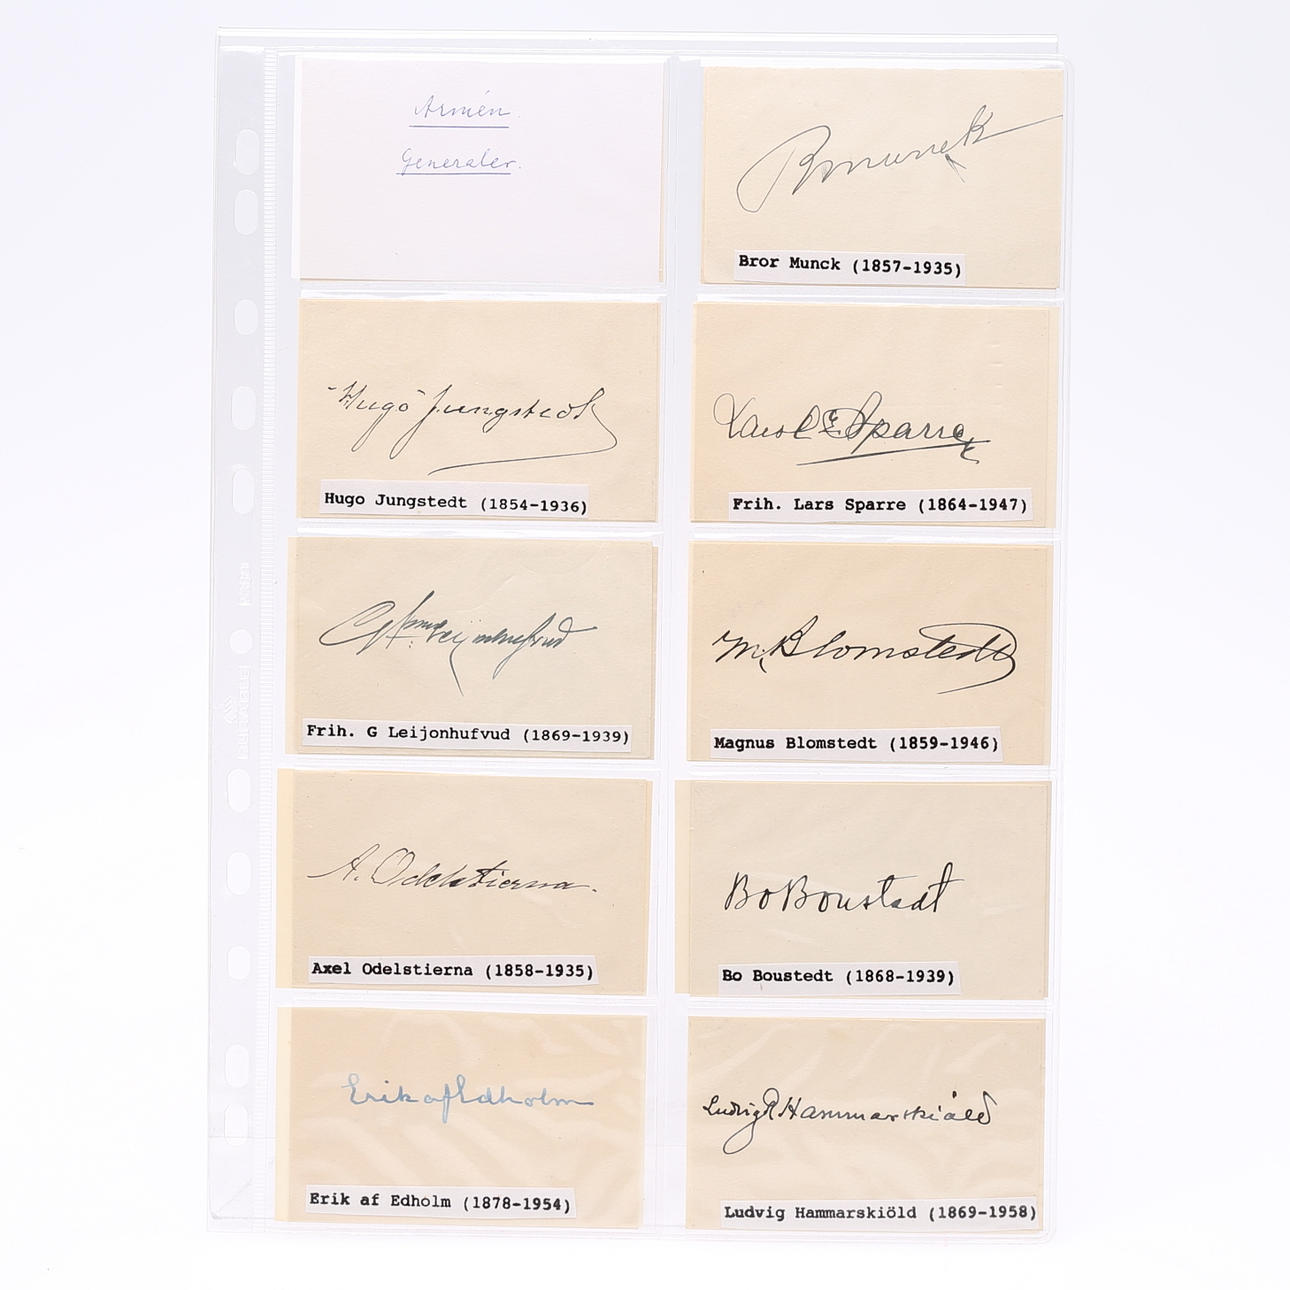 Armén.
Generaler.
BMunck
Bror Munck (1857-1935)
Hugo Jungstedt
Hugo Jungstedt (1854-1936)
Sparre
Frih. Lars Sparre (1864-1947)
Leijonhufvud
Frih. G Leijonhufvud (1869-1939)
M. Blomstedt
Magnus Blomstedt (1859-1946)
A. Odelstierna.
Axel Odelstierna (1858-1935)
Bo Boustedt
Bo Boustedt (1868-1939)
Erik af Edholm
Erik af Edholm (1878-1954)
Ludvig Hammarskiöld
Ludvig Hammarskiöld (1869-1958)